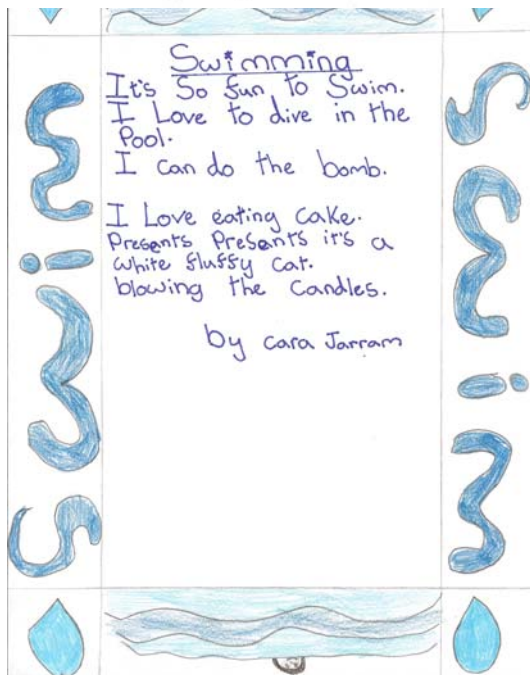 Swimming
It's So fun to Swim.
I Love to dive in the
Pool.
I can do the bomb.
I Love eating cake.
Presents Presents it's a
white fluffy cat.
blowing the candles.
by cara Jarram
swim
swim